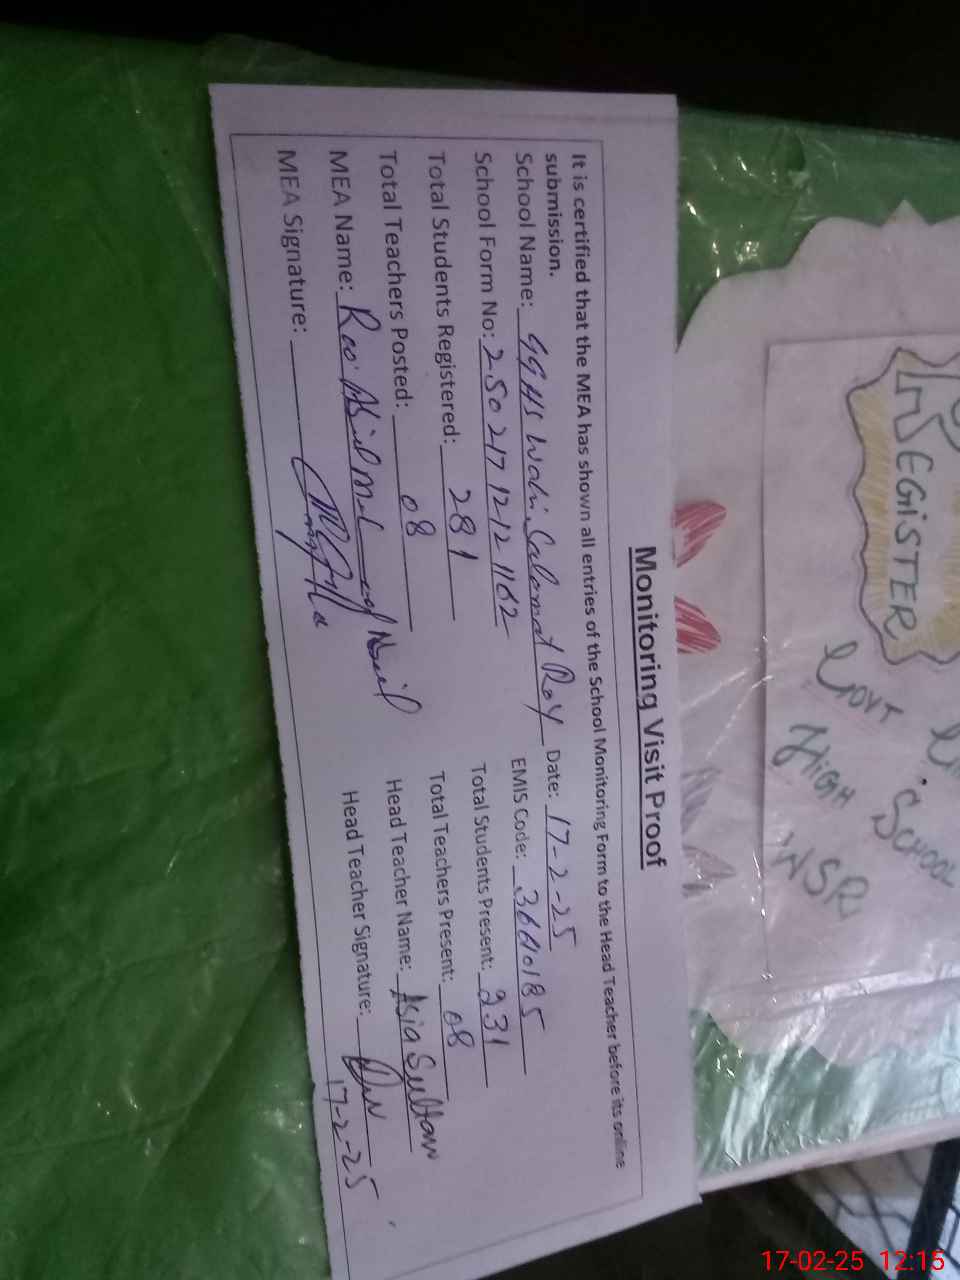 REGISTER
GOVT
HIGH SCHOOL
WSR
Monitoring Visit Proof
It is certified that the MEA has shown all entries of the School Monitoring Form to the Head Teacher before its online
submission.
School Name: GGHS Wahi Salamat Roy Date: 17-2-25
School Form No: 2502171212 1162 EMIS Code: 3660185
Total Students Registered: 281 Total Students Present: 231
Total Teachers Posted: 08 Total Teachers Present: 08
MEA Name: Head Teacher Name: Asia Sultan
MEA Signature: Head Teacher Signature:
17-2-25
17-02-25 12:15